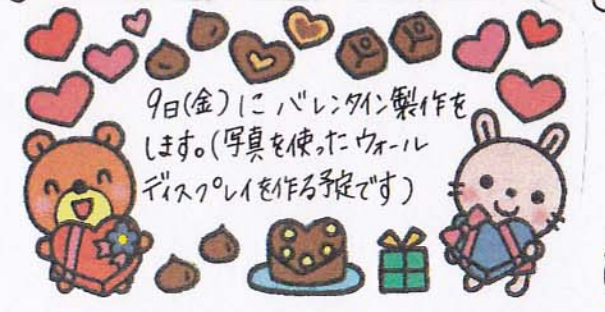 9日(金)に バレンタイン製作を
します。(写真を使ったウォール
ディスプレイを作る予定です)